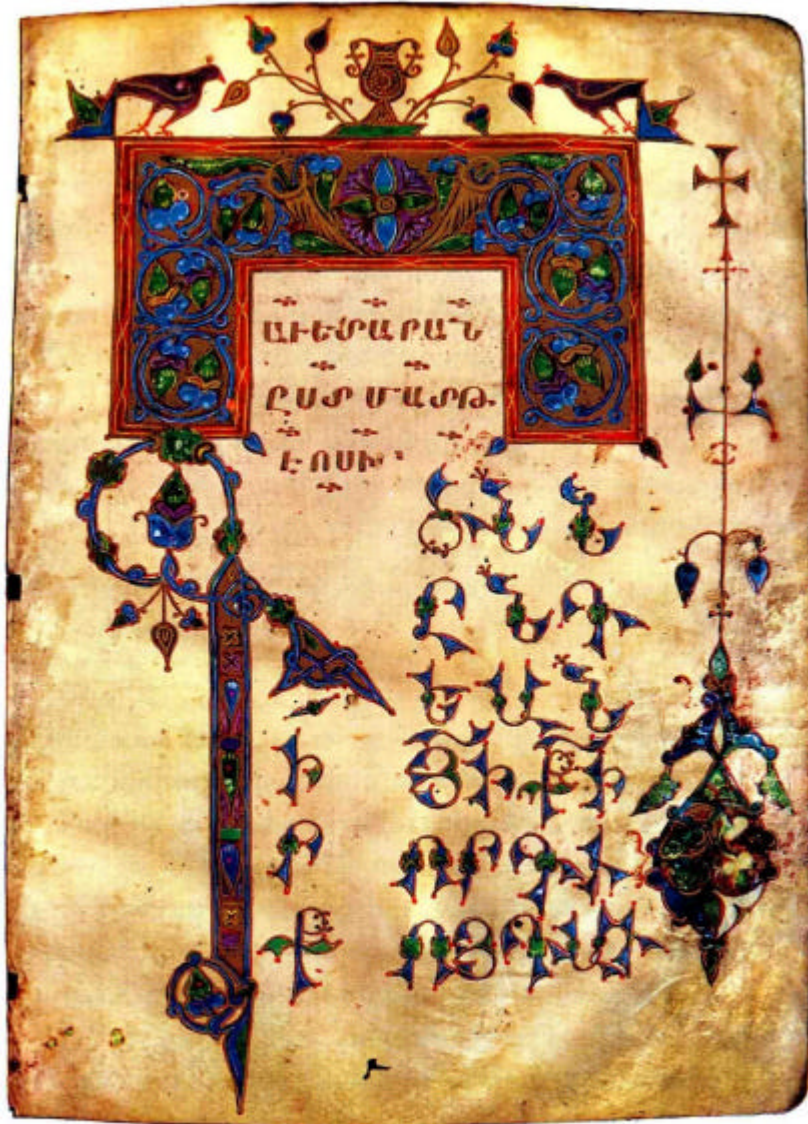 ԱՒԵՏԱՐԱՆ
ԸՍՏ ՄԱՏԹ
ԷՈՍԻ
Գ
Ի
Ր
Ք
ԾՆՆ
ԸՆԴ
ԵԱՆ
ՅԻ ՔԻ
ՈՐԴ